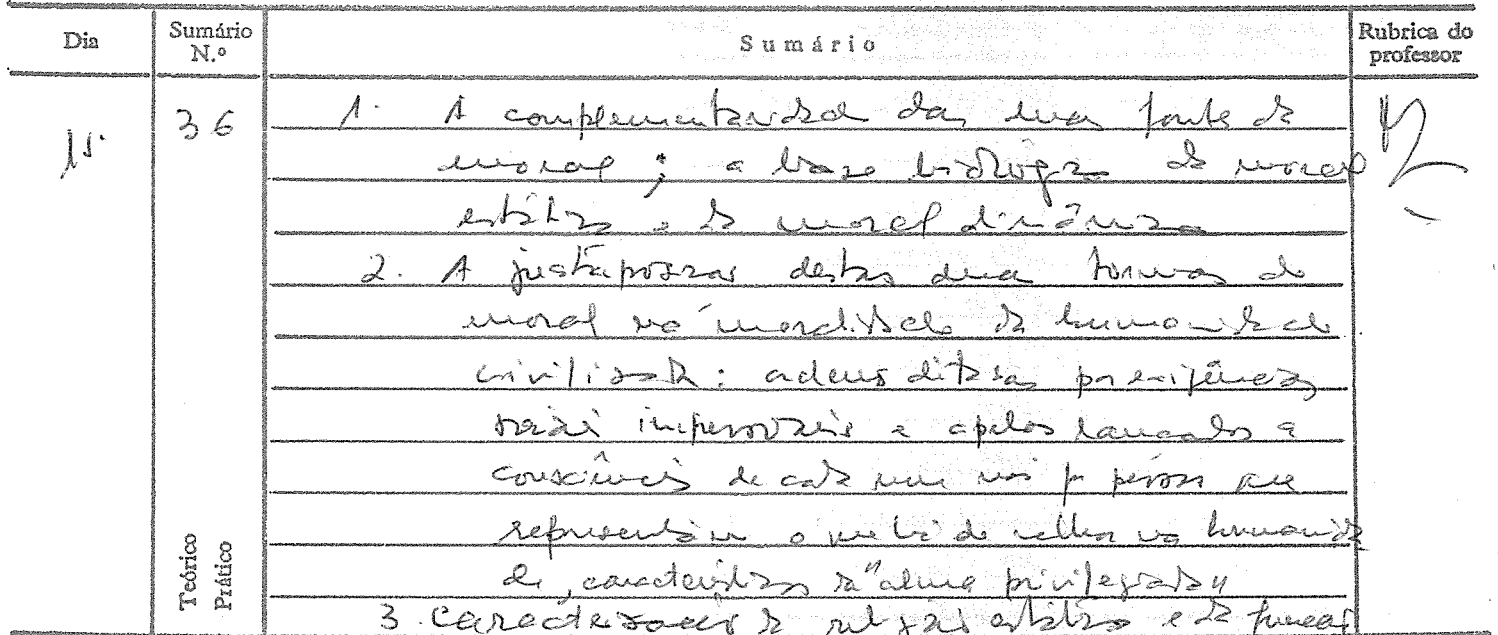 Dia
Sumário N.º
Sumário
Rubrica do professor
15.
36
1. A complementaridade das duas fontes da
moral; a base biológica da moral
estática e da moral dinâmica
2. A justaposição destas duas formas de
moral na moralidade da humanidade
civilizada: ordens ditadas por exigências
sociais impessoais e apelos lançados à
consciência de cada um nós por pessoas que
representam o que há de melhor na humanida
de, características da "alma privilegiada"
3. Caracterização da religião estática e da
Teórico
Prático